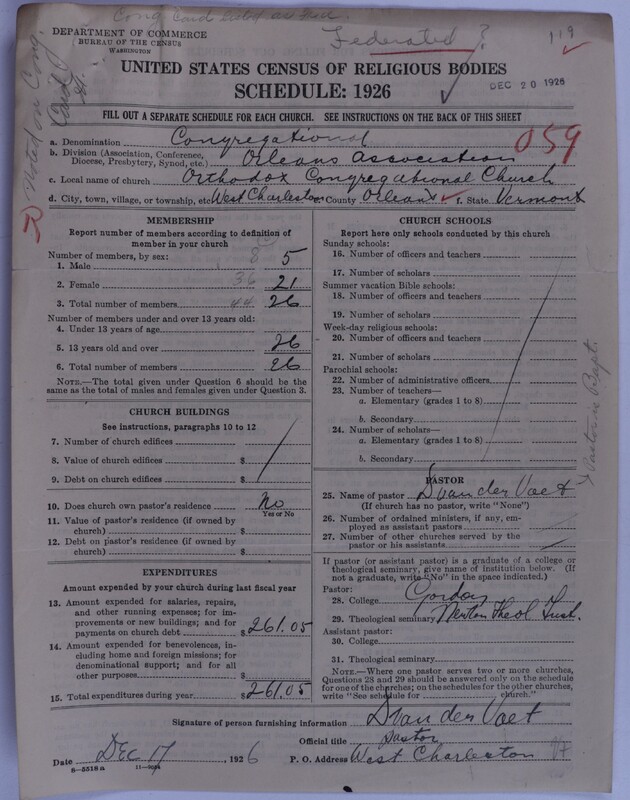 Cong Card listed as full.
DEPARTMENT OF COMMERCE
BUREAU OF THE CENSUS
WASHINGTON
Federated?
119
UNITED STATES CENSUS OF RELIGIOUS BODIES
DEC 20 1926
SCHEDULE: 1926
FILL OUT A SEPARATE SCHEDULE FOR EACH CHURCH. SEE INSTRUCTIONS ON THE BACK OF THIS SHEET
Noted on Cong. Card
059
a. Denomination Congregational
b. Division (Association, Conference, Diocese, Presbytery, Synod, etc.) Orleans Association
c. Local name of church Orthodox Congregational Church
d. City, town, village, or township, etc. West Charleston e. County Orleans f. State Vermont
MEMBERSHIP
Report number of members according to definition of member in your church
Number of members, by sex:
1. Male 8 5
2. Female 36 21
3. Total number of members 44 26
Number of members under and over 13 years old:
4. Under 13 years of age
5. 13 years old and over 26
6. Total number of members 26
NOTE.—The total given under Question 6 should be the same as the total of males and females given under Question 3.
CHURCH BUILDINGS
See instructions, paragraphs 10 to 12
7. Number of church edifices
8. Value of church edifices $
9. Debt on church edifices $
10. Does church own pastor's residence No
Yes or No
11. Value of pastor's residence (if owned by church) $
12. Debt on pastor's residence (if owned by church) $
EXPENDITURES
Amount expended by your church during last fiscal year
13. Amount expended for salaries, repairs, and other running expenses; for improvements or new buildings; and for payments on church debt $ 261.05
14. Amount expended for benevolences, including home and foreign missions; for denominational support; and for all other purposes $
15. Total expenditures during year $ 261.05
CHURCH SCHOOLS
Report here only schools conducted by this church
Sunday schools:
16. Number of officers and teachers
17. Number of scholars
Summer vacation Bible schools:
18. Number of officers and teachers
19. Number of scholars
Week-day religious schools:
20. Number of officers and teachers
21. Number of scholars
Parochial schools:
22. Number of administrative officers
23. Number of teachers—
a. Elementary (grades 1 to 8)
b. Secondary
24. Number of scholars—
a. Elementary (grades 1 to 8)
b. Secondary
Pastor is Bapt.
PASTOR
25. Name of pastor D van der Voet
(If church has no pastor, write "None")
26. Number of ordained ministers, if any, employed as assistant pastors
27. Number of other churches served by the pastor or his assistants
If pastor (or assistant pastor) is a graduate of a college or theological seminary, give name of institution below. (If not a graduate, write "No" in the space indicated.)
Pastor:
28. College Gordon
29. Theological seminary Newton Theol Inst.
Assistant pastor:
30. College
31. Theological seminary
NOTE.—Where one pastor serves two or more churches, Questions 28 and 29 should be answered only on the schedule for one of the churches; on the schedules for the other churches, write "See schedule for church."
Signature of person furnishing information D van der Voet
Official title Pastor
Date Dec 17, 1926 P. O. Address West Charleston Vt
8—5518a 11—9034